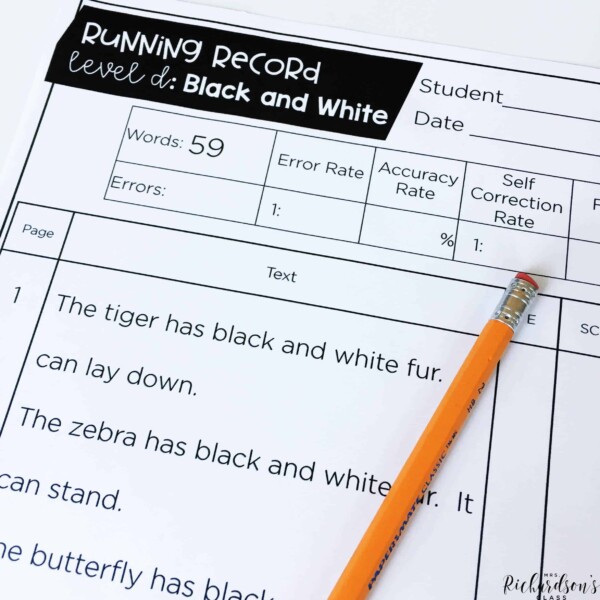 Running Record
level d: Black and White
Student
Date
Words: 59
Errors:
Error Rate
1:
Accuracy Rate
%
Self Correction Rate
1:
Page
Text
E
SC
1
The tiger has black and white fur.
can lay down.
The zebra has black and white fur. It
can stand.
The butterfly has black
MRS.
Richardson's
CLASS